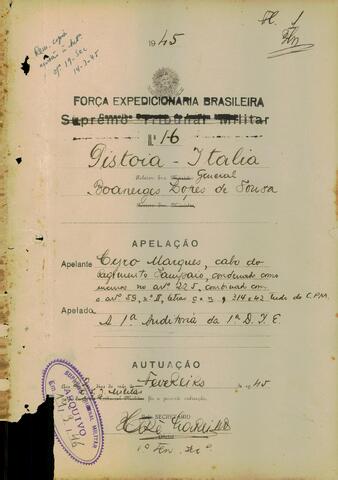 Fl. 1
1945
Rem. copia
of. 19-Sec
14-3-45
FORÇA EXPEDICIONARIA BRASILEIRA
Suprêmo Tribunal Militar
Nº 16
Pistoia - Italia
General
Boanerges Lopes de Sousa
APELAÇÃO
Apelante Cyro Marques, cabo do
Regimento Sampaio, condenado como
incurso no artº 225, combinado com
o artº 59, nº 8, letras 314 e 42 tudo do C.P.M.
Apelada
A 1ª Auditoria da 1ª D.I.E.
AUTUAÇÃO
dias do mês de Fevereiro de 1945
fio a presente autuação.
SECRETÁRIO
José
1º Ten.
TRIBUNAL MILITAR
ARQUIVO